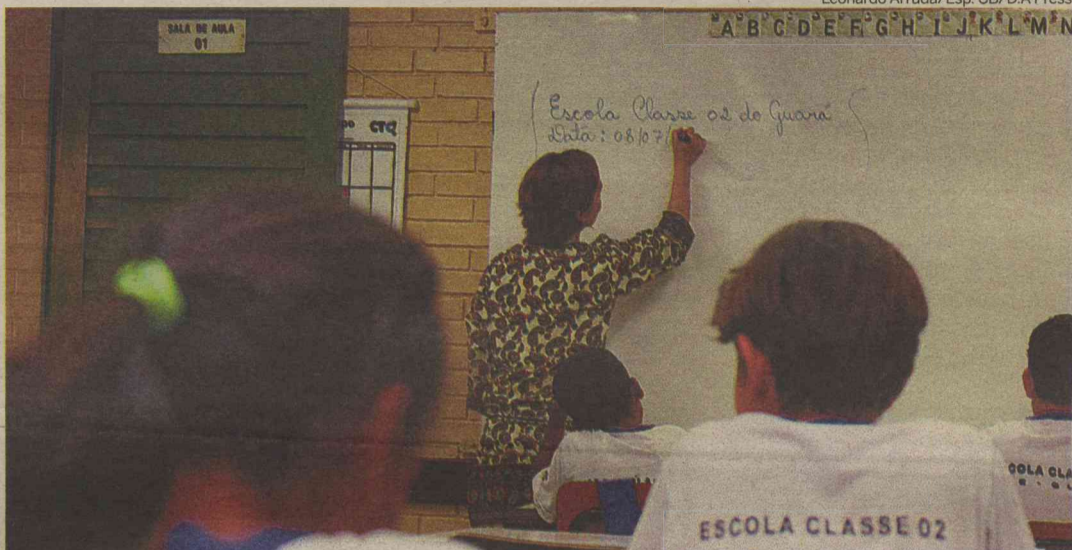 Leonardo Arruda/Esp. CB/D.A Press
SALA DE AULA
01
A B C D E F G H I J K L M N
CTQ
Escola Classe 02 do Guará
Data: 08/07/
ESCOLA CLASSE 02
COLA CLA